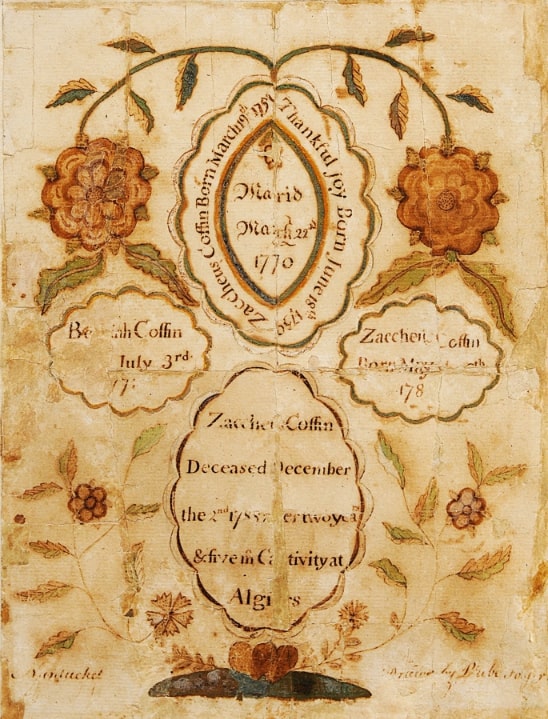 Zaccheus Coffin Born March 19th 1751
Thankful Joy Born June 18th 1750
Marid
March 22d
1770
Coffin
July 3rd.
Zaccheus Coffin
Born May
178
Zaccheus Coffin
Deceased December
the 2nd 1788 after two years
& five m Captivity at
Algiers
Nantucket
Drawn by Phebe